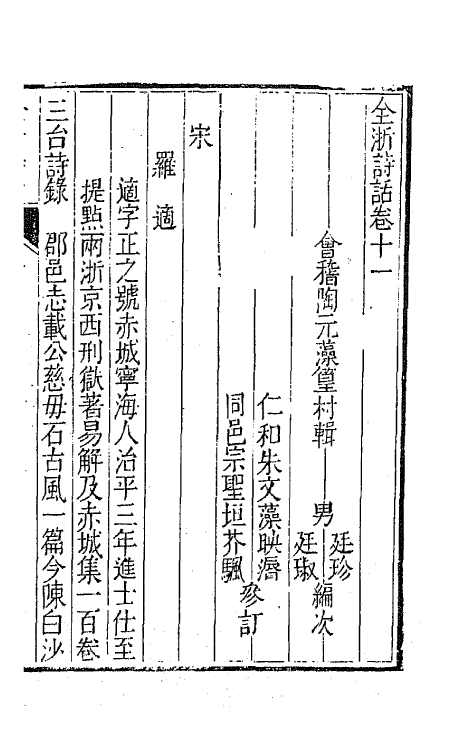 全浙詩話卷十一
會稽陶元藻篁村輯 男 廷珍 廷琡 編次
仁和朱文藻映漘
同邑宗聖垣芥颿 參訂
宋
羅適
適字正之號赤城寧海人治平三年進士仕至
提點兩浙京西刑獄著易解及赤城集一百卷
三台詩錄 郡邑志載公慈毋石古風一篇今陳白沙